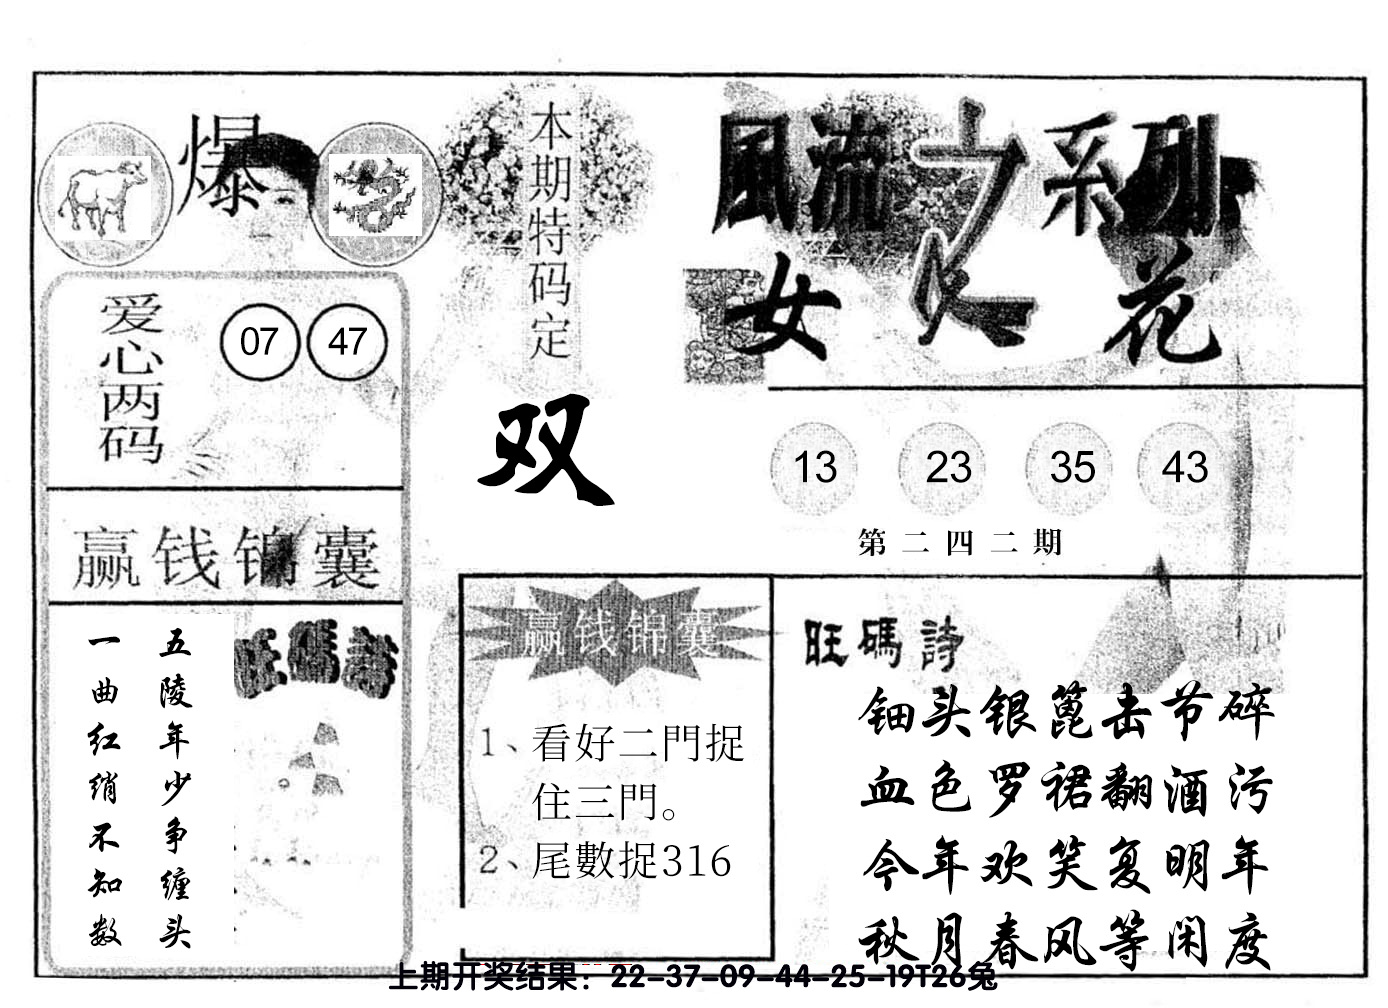 爆
本期特码定
双
風流之系列
女人花
爱心两码
07 47
13 23 35 43
第二四二期
赢钱锦囊
旺碼詩
五陵年少争缠头
一曲红绡不知数
赢钱锦囊
1、看好二門捉
住三門。
2、尾數捉316
旺碼詩
钿头银篦击节碎
血色罗裙翻酒污
今年欢笑复明年
秋月春风等闲度
上期开奖结果：22-37-09-44-25-19T26兔